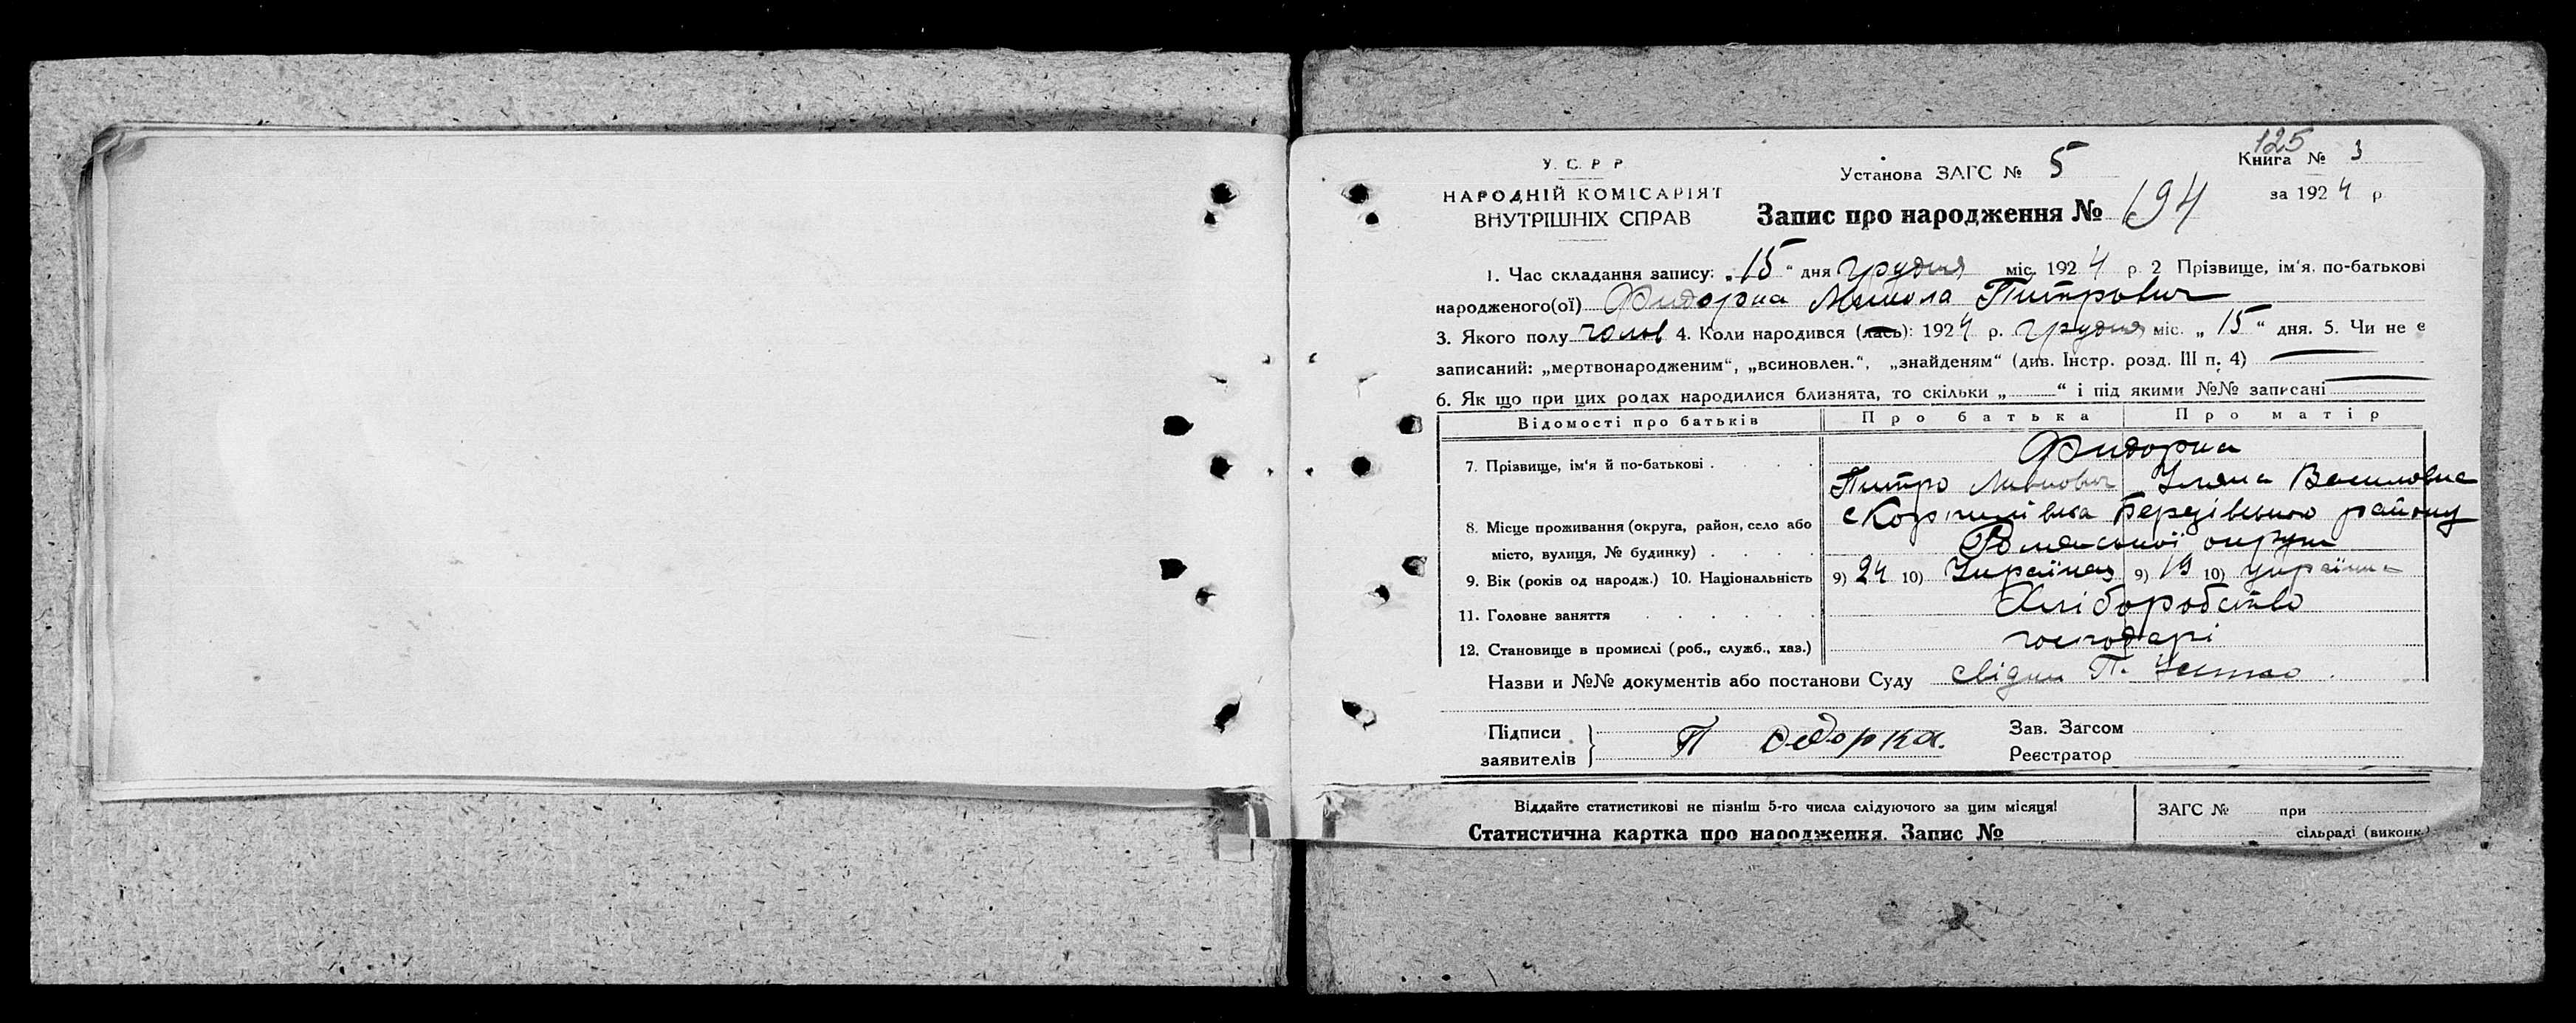 125
У. С. Р. Р.
НАРОДНІЙ КОМІСАРІЯТ
ВНУТРІШНІХ СПРАВ
Установа ЗАГС № 5
Книга № 3
за 1924 р.
Запис про народження № 194
1. Час складання запису: „15“ дня Грудня міс. 1924 р. 2 Прізвище, ім'я, по-батькові
народженого(ої) Фидорка Микола Питрович
3. Якого полу чолов 4. Коли народився (лась): 1924 р. Грудня міс. „15“ дня. 5. Чи не є
записаний: „мертвонародженим“, „всиновлен.“, „знайденям“ (див. Інстр. розд. III п. 4)
6. Як що при цих родах народилися близнята, то скільки „ “ і під якими №№ записані
Відомості про батьків Про батька Про матір
7. Прізвище, ім'я й по-батькові . . . . Фидорка
Питро Уляна Василовна
8. Місце проживання (округа, район, село або с Березівського району
місто, вулиця, № будинку) . . . . Роменської округи
9. Вік (років од народж.) 10. Національність 9) 24 10) Українец 9) 19 10) Українка
11. Головне заняття . . . . . . Хліборобство
12. Становище в промислі (роб., служб., хаз.) господарі
Назви и №№ документів або постанови Суду свідки П.
Підписи
заявителів
П Федорка.
Зав. Загсом
Реєстратор
Віддайте статистикові не пізніш 5-го числа слідуючого за цим місяця!
Статистична картка про народження. Запис №
ЗАГС № при
сільраді (виконк.)